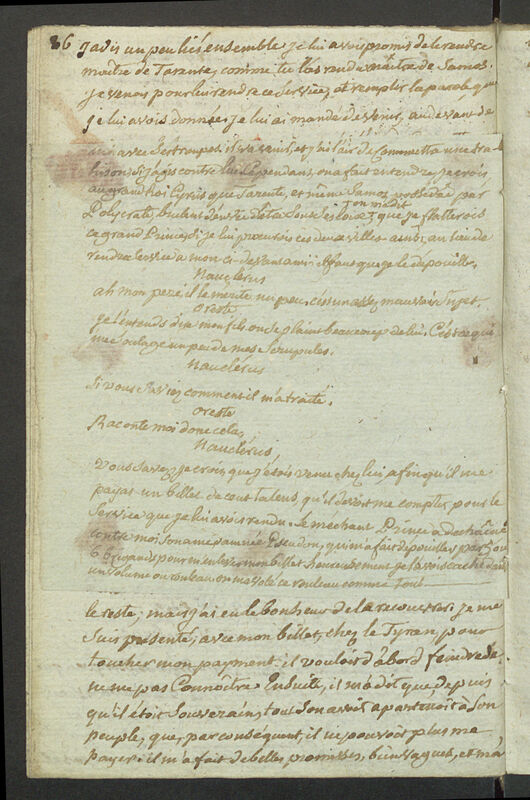 86 jadis un peu liés ensemble je lui avois promis de le rendre
maître de Tarente, comme tu l'as rendu maître de Samos.
je venois pour lui rendre ce service, et remplir la parole, que
je lui avois donnée; je lui ai mandé de venir, au devant de
moi avec ses troupes; il va venir, et j'ai l'air de commettre une tra-
hison si j'agis contre lui. Cependant, on a fait entendre, je crois
au grand Roi Cyrus que Tarente, et même Samos possédée par
Polycrate, brulent d'envie d'être sous ses loix; on m'a dit que je flatterois
ce grand Prince, si je lui procurois ces deux villes. ainsi, au lieu de
rendre service à mon ci-devant ami il faut que je le dépouille.
Nauclérus
ah mon pere, il le mérite un peu, c'est un assez mauvais sujet.
oreste
je l'entends dire mon fils, on se plaint beaucoup de lui. C'est ce qui
me soulage un peu de mes scrupules.
Nauclérus
Si vous saviez comment il m'a traité.
oreste
Raconte moi donc cela,
Nauclérus
Vous savez, je crois, que j'étois venu chez lui afin qu'il me
payat un billet de cent talens, qu'il devoit me compter pour le
service que je lui avois rendu. Le mechant Prince a dechainé
contre moi son ame damnée Pseudon, qui m'a fait depouiller par 5 ou
6 brigands pour m'enlever mon billet. heureusement je l'avois caché dans
un volume ou rouleau on m'a volé ce rouleau comme tout
le reste; mais j'ai eu le bonheur de la recouvrer. je me
suis présenté, avec mon billet, chez le Tyran, pour
toucher mon payment. il vouloit d'abord feindre de
ne me pas Connoître Ensuite, il m'a dit que depuis
qu'il étoit Souverain, tout son avoit apartenoit à Son
peuple, que, par conséquent, il ne pouvoit plus me
payer. il m'a fait de belles promesses, bien vagues, et m'a